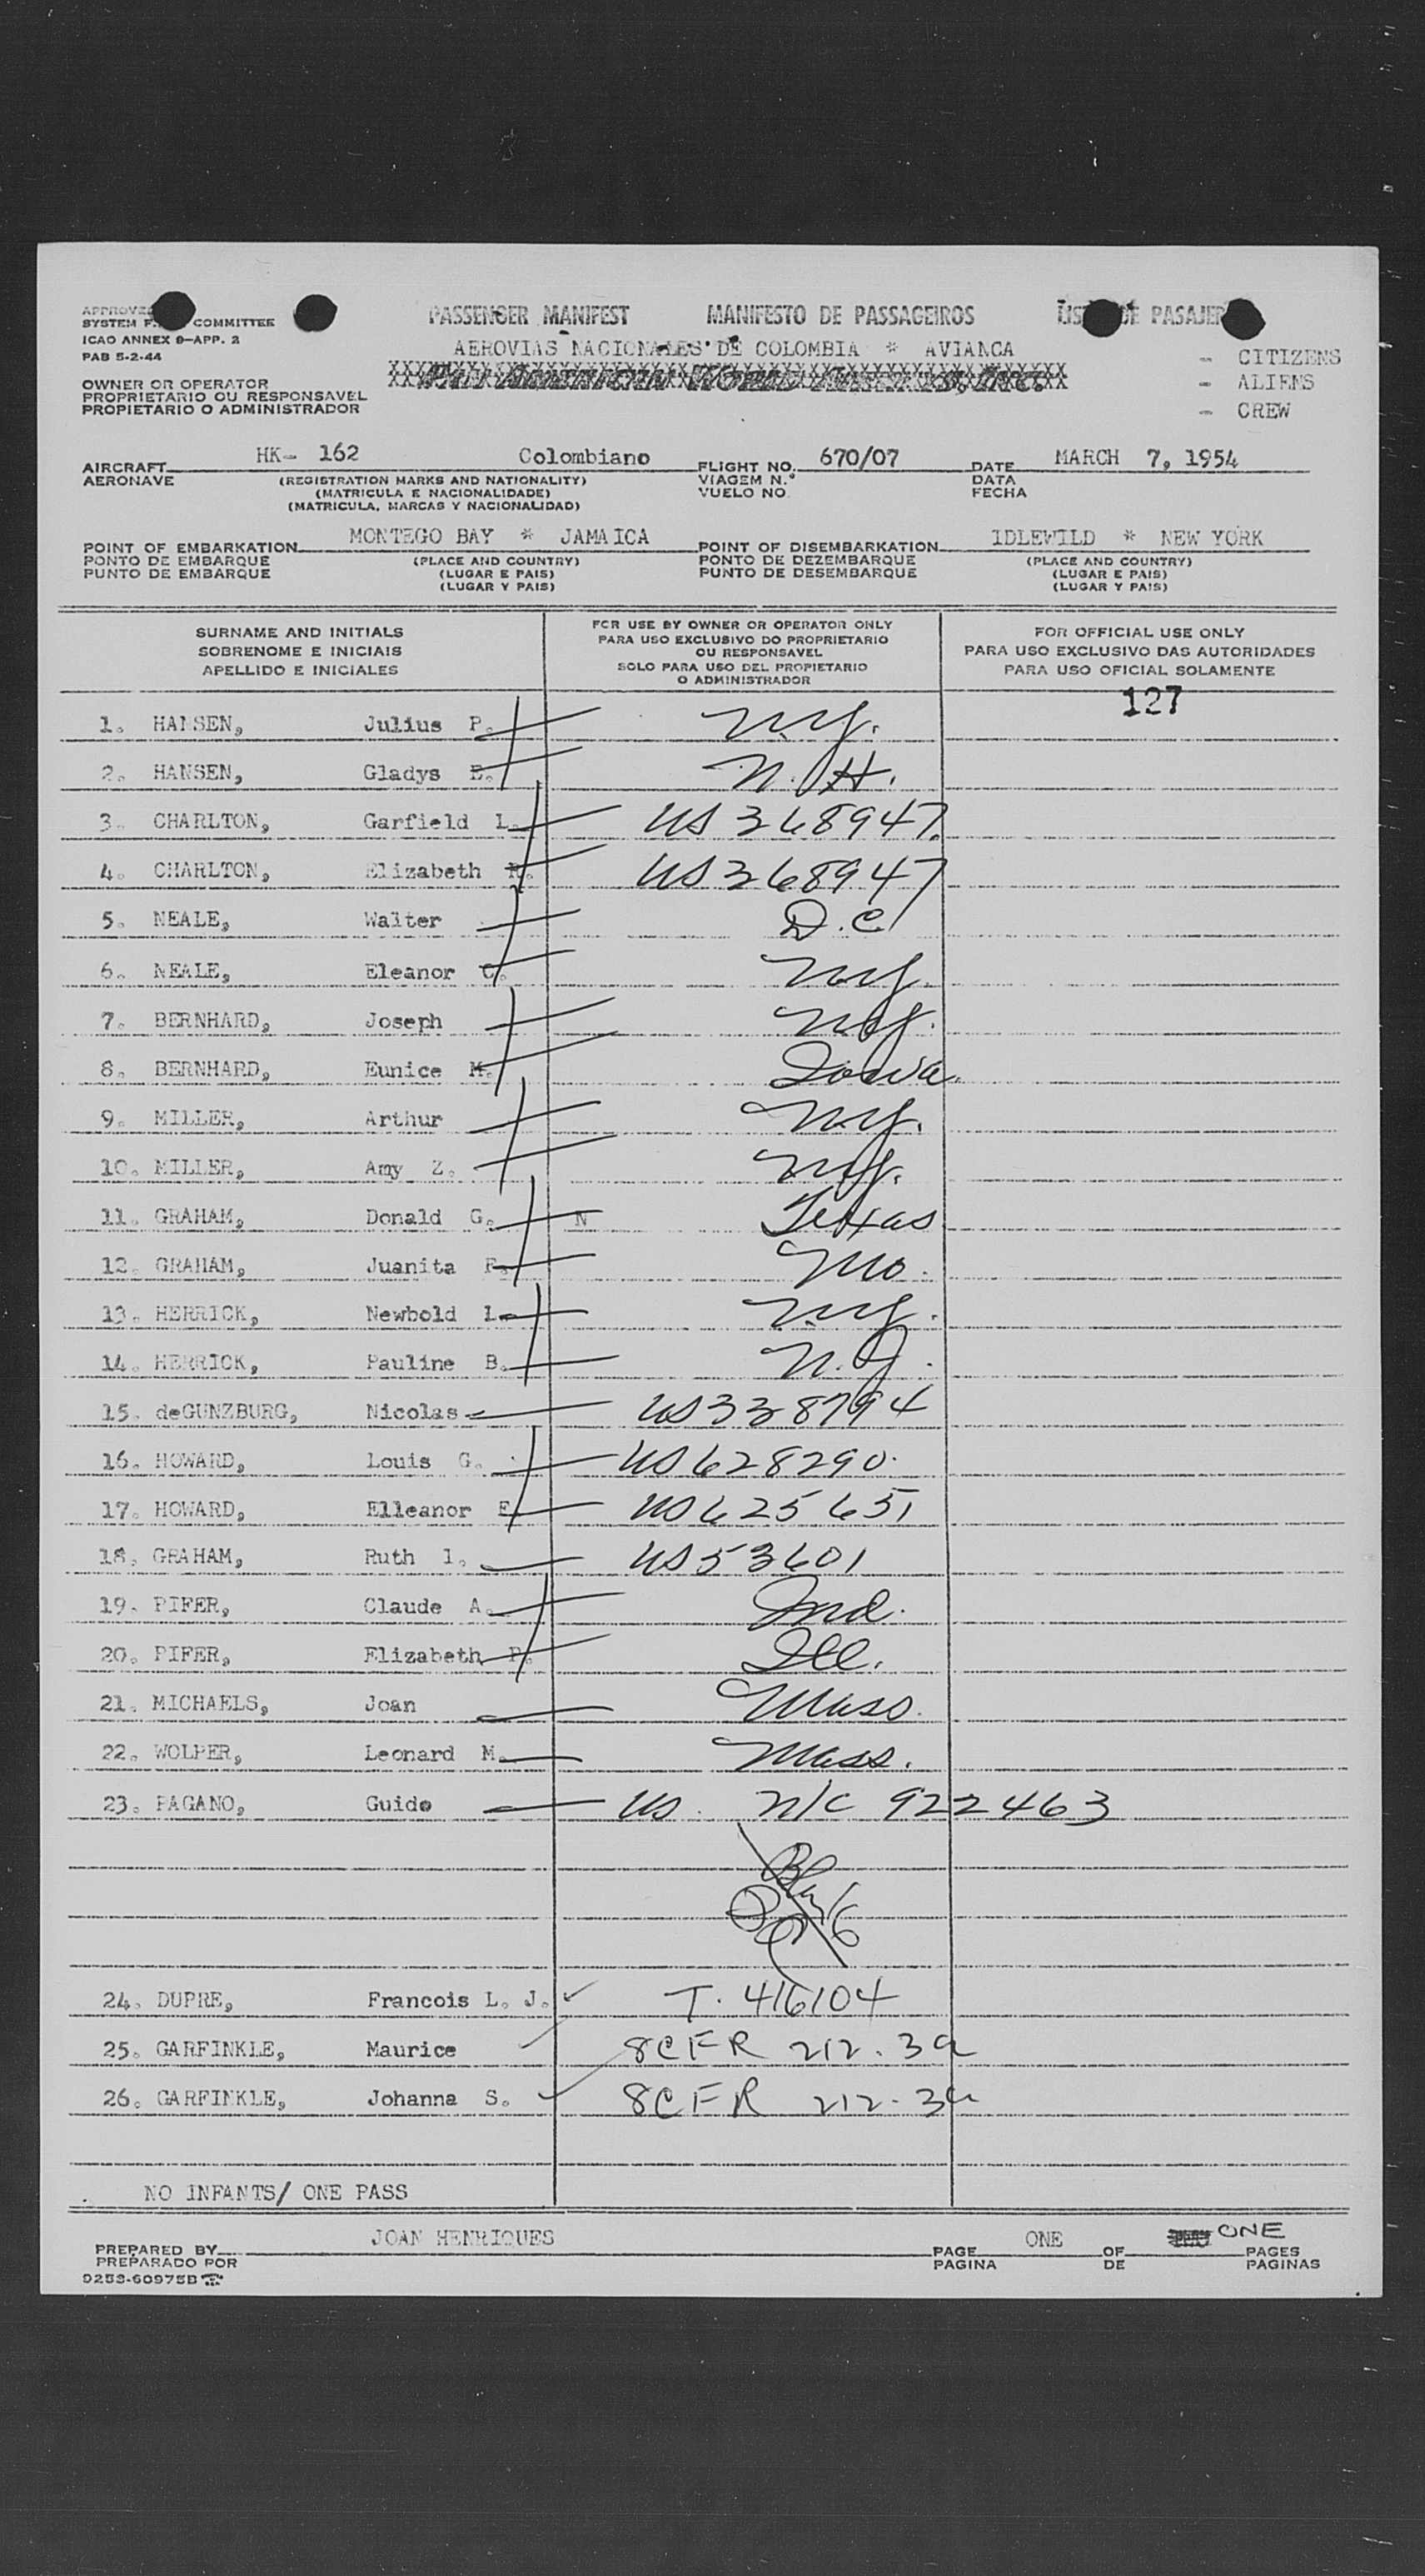 PASSENGER MANIFEST MANIFESTO DE PASSAGEIROS
SYSTEM COMMITTEE
ICAO ANNEX 9-APP. 2
PAB 5-2-44
AEROVIAS NACIONALES DE COLOMBIA * AVIANCA
- CITIZENS
- ALIENS
- CREW
OWNER OR OPERATOR
PROPRIETARIO OU RESPONSAVEL
PROPIETARIO O ADMINISTRADOR
AIRCRAFT HK- 162 Colombiano FLIGHT NO. 670/07 DATE MARCH 7, 1954
AERONAVE (REGISTRATION MARKS AND NATIONALITY) VIAGEM N.º DATA
(MATRICULA E NACIONALIDADE) VUELO NO. FECHA
(MATRICULA, MARCAS Y NACIONALIDAD)
POINT OF EMBARKATION MONTEGO BAY * JAMAICA POINT OF DISEMBARKATION IDLEWILD * NEW YORK
PONTO DE EMBARQUE (PLACE AND COUNTRY) PONTO DE DEZEMBARQUE (PLACE AND COUNTRY)
PUNTO DE EMBARQUE (LUGAR E PAIS) PUNTO DE DESEMBARQUE (LUGAR E PAIS)
(LUGAR Y PAIS) (LUGAR Y PAIS)
SURNAME AND INITIALS
SOBRENOME E INICIAIS
APELLIDO E INICIALES
FOR USE BY OWNER OR OPERATOR ONLY
PARA USO EXCLUSIVO DO PROPRIETARIO
OU RESPONSAVEL
SOLO PARA USO DEL PROPIETARIO
O ADMINISTRADOR
FOR OFFICIAL USE ONLY
PARA USO EXCLUSIVO DAS AUTORIDADES
PARA USO OFICIAL SOLAMENTE
127
1. HANSEN, Julius P. N.Y.
2. HANSEN, Gladys E. N.H.
3. CHARLTON, Garfield L. US 368947
4. CHARLTON, Elizabeth R. US 368947
5. NEALE, Walter D.C
6. NEALE, Eleanor C. N.Y.
7. BERNHARD, Joseph N.Y.
8. BERNHARD, Eunice M. Iowa.
9. MILLER, Arthur N.Y.
10. MILLER, Amy Z. N.Y.
11. GRAHAM, Donald G. N Texas
12. GRAHAM, Juanita F. Mo.
13. HERRICK, Newbold L. N.Y.
14. HERRICK, Pauline B. N.J.
15. deGUNZBURG, Nicolas US338794
16. HOWARD, Louis G. US628290
17. HOWARD, Elleanor E. US625651
18. GRAHAM, Ruth I. US53601
19. PIFER, Claude A. Ind.
20. PIFER, Elizabeth P. Ill.
21. MICHAELS, Joan Mass.
22. WOLPER, Leonard M. Mass.
23. PAGANO, Guido US. N/C 922463
24. DUPRE, Francois L. J. T. 416104
25. GARFINKLE, Maurice 8CFR 212.3a
26. GARFINKLE, Johanna S. 8CFR 212.3a
NO INFANTS/ ONE PASS
PREPARED BY JOAN HENRIQUES PAGE ONE OF ONE PAGES
PREPARADO POR PAGINA DE PAGINAS
9253-60975B